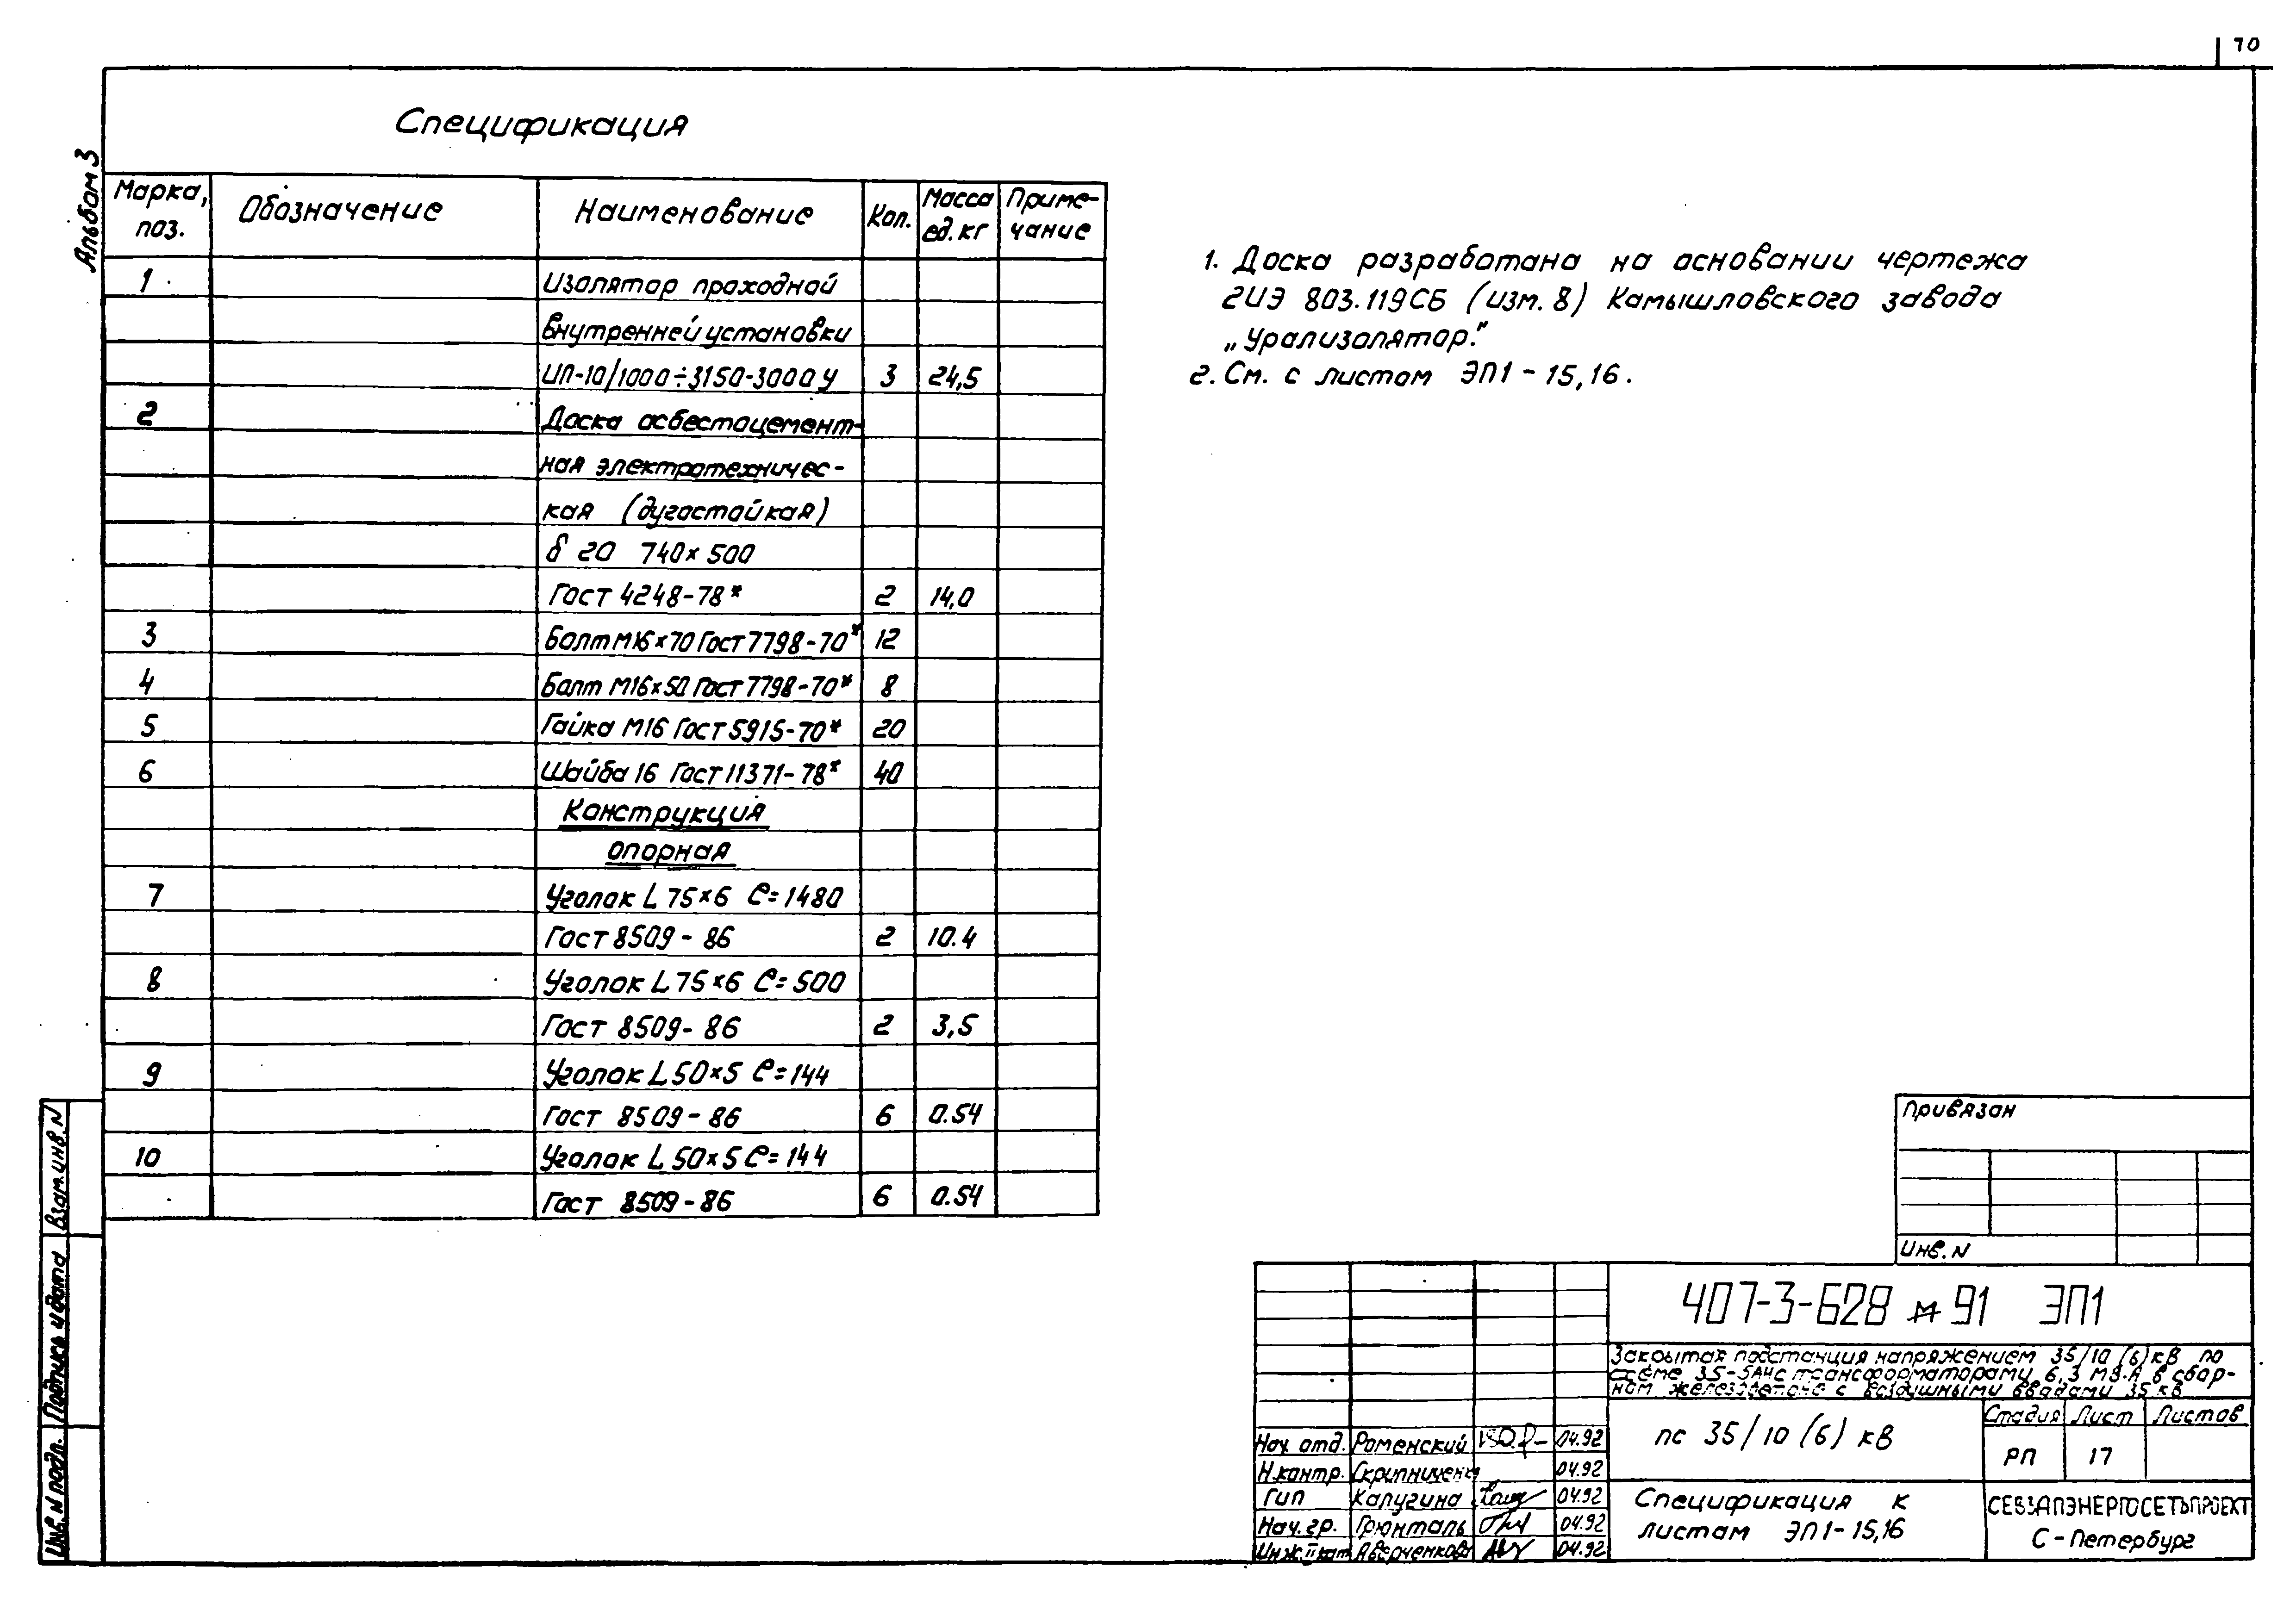 70
Альбом 3
Спецификация
Марка, поз. Обозначение Наименование Кол. Масса ед. кг Приме-чание
1 Изолятор проходной
внутренней установки
ИП-10/1000÷3150-3000 У 3 24,5
2 Доска асбестоцемент-
ная электротехничес-
кая (дугостойкая)
δ 20 740×500
Гост 4248-78* 2 14,0
3 Болт М16×70 Гост 7798-70* 12
4 Болт М16×50 Гост 7798-70* 8
5 Гайка М16 Гост 5915-70* 20
6 Шайба 16 Гост 11371-78* 40
Конструкция
опорная
7 Уголок L 75×6 ℓ=1480
Гост 8509-86 2 10.4
8 Уголок L 75×6 ℓ=500
Гост 8509-86 2 3,5
9 Уголок L 50×5 ℓ=144
Гост 8509-86 6 0.54
10 Уголок L 50×5 ℓ=144
Гост 8509-86 6 0.54
1. Доска разработана на основании чертежа
2ИЭ 803.119СБ (изм. 8) Камышловского завода
„Урализолятор".
2. См. с листом ЭП1-15,16.
Привязан
Инв. N
407-3-628 м 91 ЭП1
Закрытая подстанция напряжением 35/10 (6) кВ по
схеме 35-5АН с трансформаторами 6,3 МВ.А в сбор-
ном железобетоне с воздушными вводами 35 кВ
пс 35/10 (6) кв
Стадия Лист Листов
РП 17
Спецификация к
листам ЭП1-15,16
СЕВЗАПЭНЕРГОСЕТЬПРОЕКТ
С-Петербург
Нач. отд. Роменский 04.92
Н.контр. Скрипниченко 04.92
Гип Калугина 04.92
Нач. гр. Грюнталь 04.92
Инж. II кат Аверченкова 04.92
Взам. инв. N
Подпись и дата
Инв. N подл.